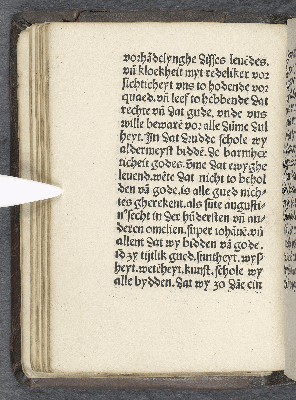 vorhādelynghe disses leuēdes.
vn̄ kloekheit myt redeliker vor
sichticheyt vns to hodende vor
quaed. vn̄ leef to hebbende dat
rechte vn̄ dat gude, vnde vns
wille bewarē vor alle dūme dul
heyt. In dat drudde schole wy
aldermeyst biddē. de barmher
ticheit godes. vme dat ewyghe
leuend. wēte dat nicht to behol
den vā gode. is alle gued nich-
tes gherekent. als sūte augusti-
nˢ secht in der hūdersten vn̄ an-
deren omelien. super iohānē. vn̄
allent dat wy bidden vā gode.
id zy tijtlik gued. sūntheyt. wyß
heyt. wetēheyt. kunst. schole wy
alle bydden. dat wy zo dāe ein